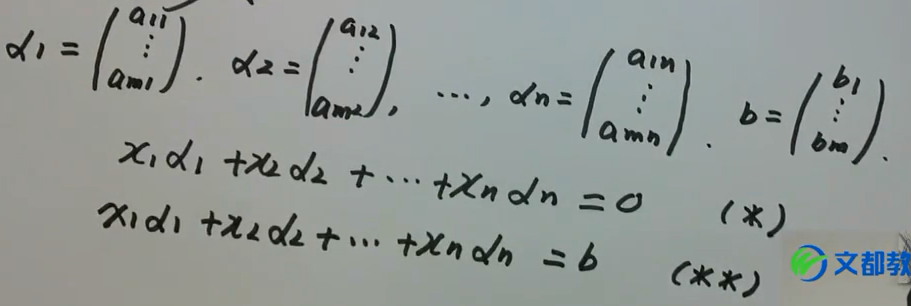 α₁ = (a₁₁ ⋮ aₘ₁). α₂ = (a₁₂ ⋮ aₘ₂), ⋯, αₙ = (a₁ₙ ⋮ aₘₙ). b = (b₁ ⋮ bₘ).
x₁α₁ + x₂α₂ + ⋯ + xₙαₙ = 0 (*)
x₁α₁ + x₂α₂ + ⋯ + xₙαₙ = b (**)
文都教